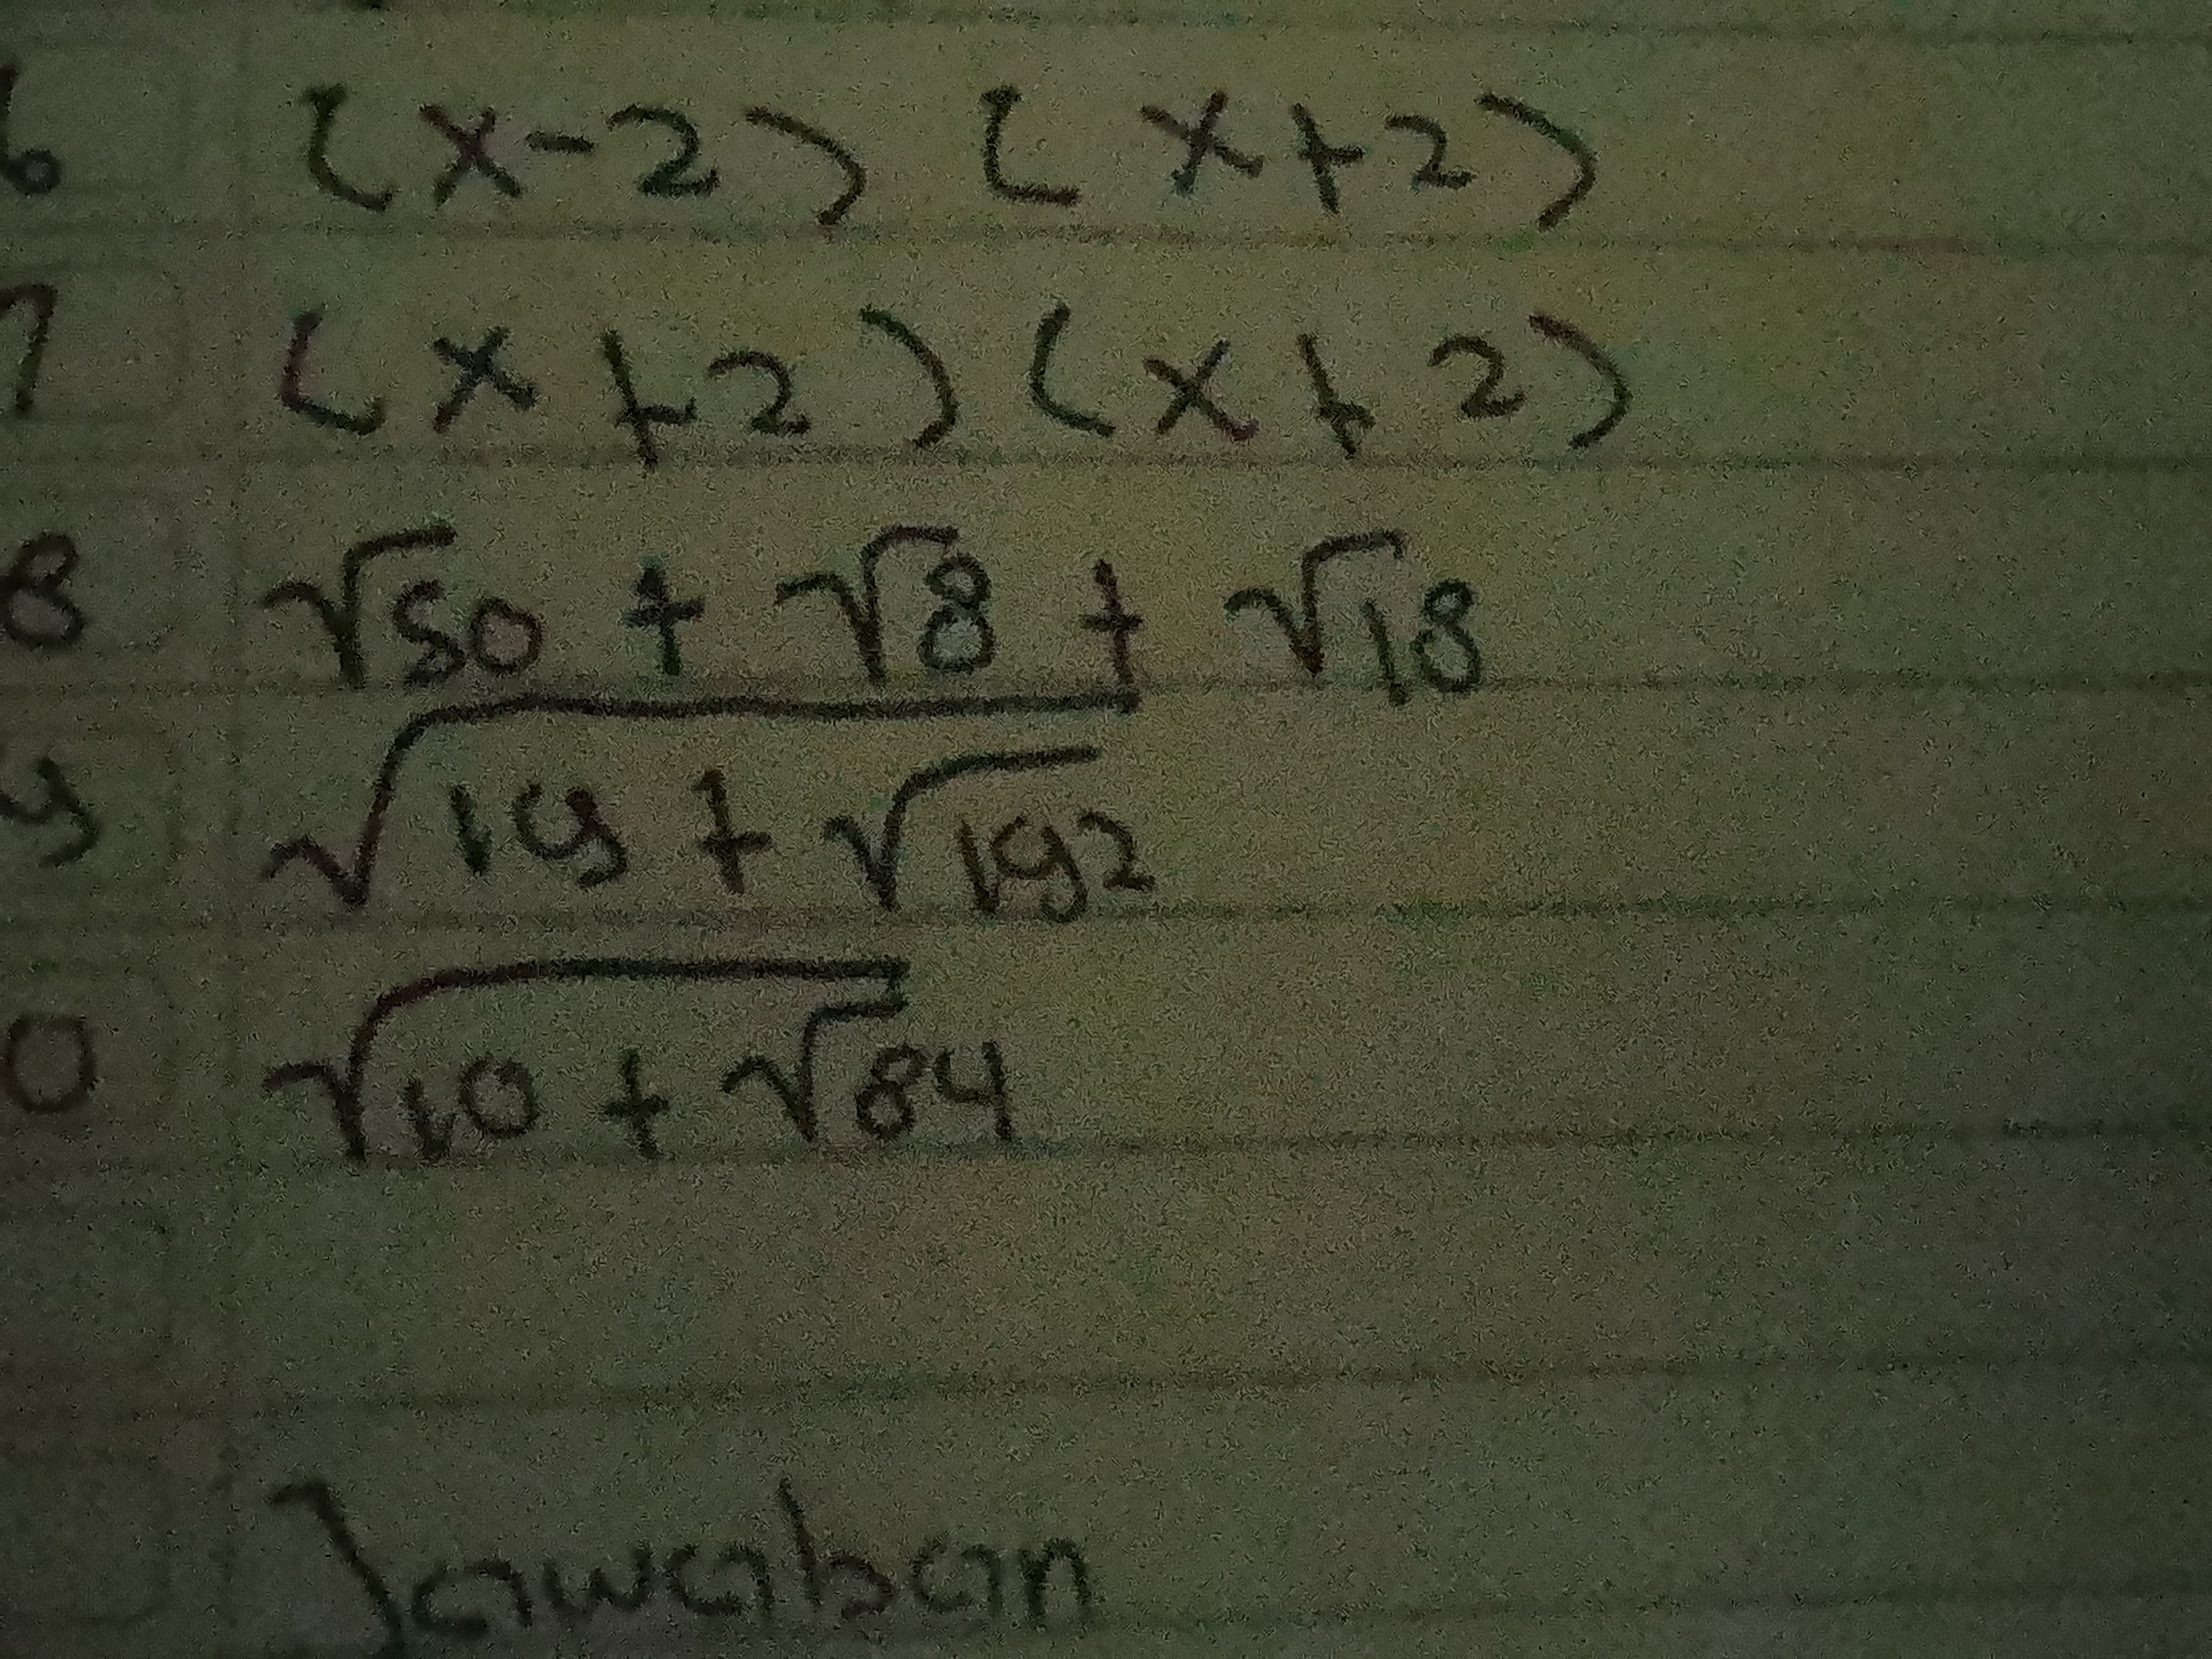 6 (x-2) (x+2)
7 (x+2)(x+2)
8 √50 + √8 + √18
9 √19+√192
0 √10+√84
Jawaban